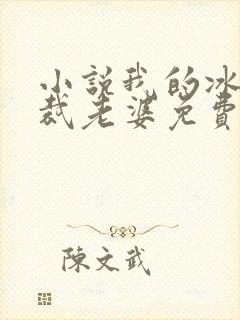 小説我的冰
裁老婆免費
陳文武